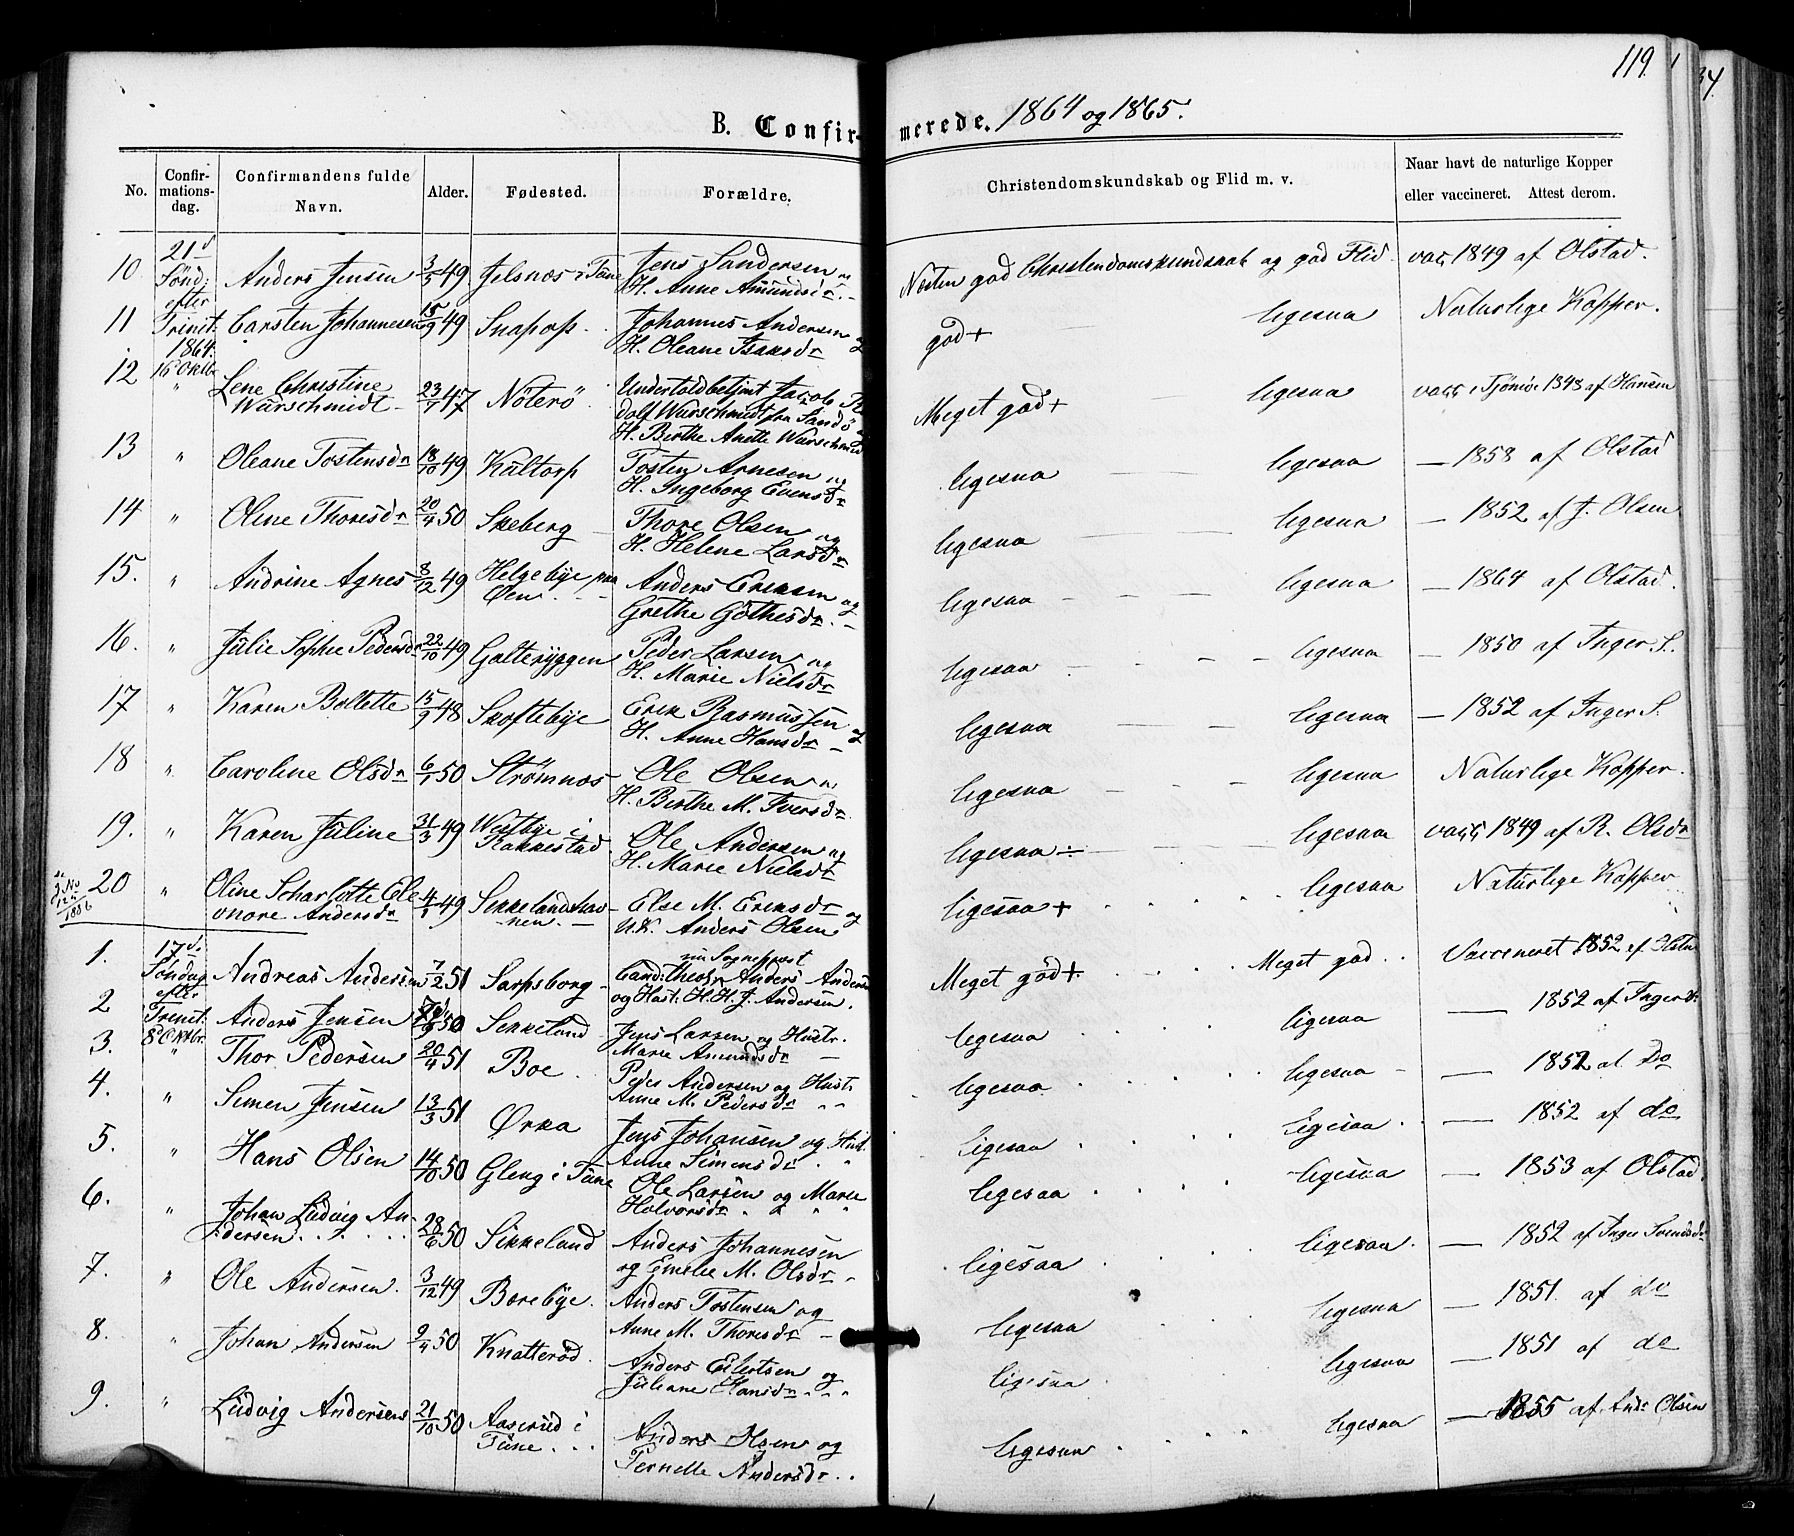 119.
34.
B. Confirmerede. 1864 og 1865.
No. Confirmationsdag. Confirmandens fulde Navn. Alder. Fødested. Forældre. Christendomskundskab og Flid m. v. Naar havt de naturlige Kopper eller vaccineret. Attest derom.
10. 21 Sönd. efter Anders Jensen 3/5 49. Jelsnæs i Tune Jens Sandersen og H. Anne Amundsdr. Næsten god Christendomskundskab og god Flid. vacc 1849 af Olstad.
11 Trinit. 1864. Carsten Johannesen 15/9 49 Snapop. Johannes Andersen og H. Oleane Isaksdr god + ligesaa Naturlige Kopper.
12 16 Oktbr " Lene Christine Würschmidt 23/7 47 Nöterö. Undertoldbetjent Jacob Rudolf Würschmidt fra Sandö og H. Birthe Anette Würschmidt Meget god + ligesaa vacc i Tjömö 1848 af Hansen
13 " Oleane Tostensdr 18/10 49 Kultorp Tosten Arnesen og H. Ingeborg Evensdr ligesaa ligesaa — 1858 af Olstad
14 " Oline Thoresdr 20/4 50 Skeberg Thore Olsen og H. Helene Larsdr ligesaa ligesaa — 1852 af J. Olsen
15. " Andrine Agnes 8/12 49 Helgebye paa Øen. Anders Eriksen og Grethe Göthesdr. ligesaa ligesaa — 1864 af Olstad.
16. " Julie Sophie Pedersdr 22/10 49 Galteryggen Peder Larsen og H. Marie Nielsdr ligesaa ligesaa — 1850 af Inger S.
17 " Karen Boltette 15/9 48 Skoftebye Erik Rasmussen og H. Anne Hansdr ligesaa ligesaa — 1852 af Inger S.
18 " Caroline Olsdr 6/1 50 Strömnæs Ole Olsen og H. Birthe M. Iversdr ligesaa ligesaa Naturlige Kopper.
19. " Karen Juline 31/3 49 Westbye i Rakkestad Ole Andersen og H. Marie Nielsdr ligesaa ÷ ligesaa vacc 1849 af R. Olsdr
20 " Oline Scharlotte Elevnore Andersdr 4/1 49 Sekkelandshavnen. Else M. Eriksdr og U.K. Anders Olsen ligesaa + ligesaa Naturlige Kopper
1886
1. 17 Söndag Andreas Andersen 7/2 51 Sarpsborg nu Sognepræst Cand: theol: Anders Andersen og Hust. H. H. J. Andersen. Meget god + Meget god Vaccineret 1852 af
2 efter Trinit. Anders Jensen 50 Sekkeland Jens Larsen og Hustr. Marie Amundsdr ligesaa ligesaa — 1852 af Inger
3. 8 Oktbr. " Thor Pedersen 20/4 51 Boe Peder Andersen og Hust. Anne M. Pedersdr ligesaa ligesaa — 1852 af Do
4. " Simen Jensen 13/3 51 Ørka Jens Johansen og Hust. Anne Simensdr ligesaa ligesaa — 1852 af do
5. " Hans Olsen 14/10 50 Gleng i Tune Ole Larsen og Marie Halvorsdr ligesaa ligesaa — 1853 af Olstad.
6. " Johan Ludvig Andersen 28/6 50 Sikkeland Anders Johannesen og Emelie M. Olsdr ligesaa ligesaa — 1852 af Inger Svendsdr
7. " Ole Andersen 3/12 49 Borebye Anders Tostensen og Anne M. Thoresdr ligesaa ligesaa — 1851. af do
8. " Johan Andersen 9/4 50 Knatteröd. Anders Eilertsen og Juliane Hansdr ligesaa ligesaa — 1851 af do
9. " Ludvig Andersens 21/10 50 Aaserud i Tune Anders Olsen og Pernelle Andersdr. ligesaa ligesaa — 1855 af Andr Olsen